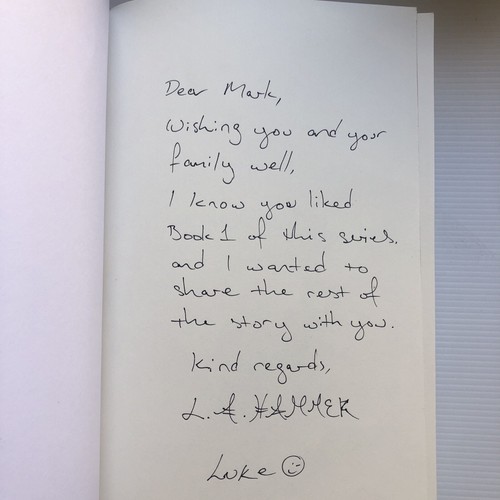 Dear Mark,
Wishing you and your
family well,
I know you liked
Book 1 of this series.
and I wanted to
share the rest of
the story with you.
Kind regards,
L.A. HAMMER
Luke